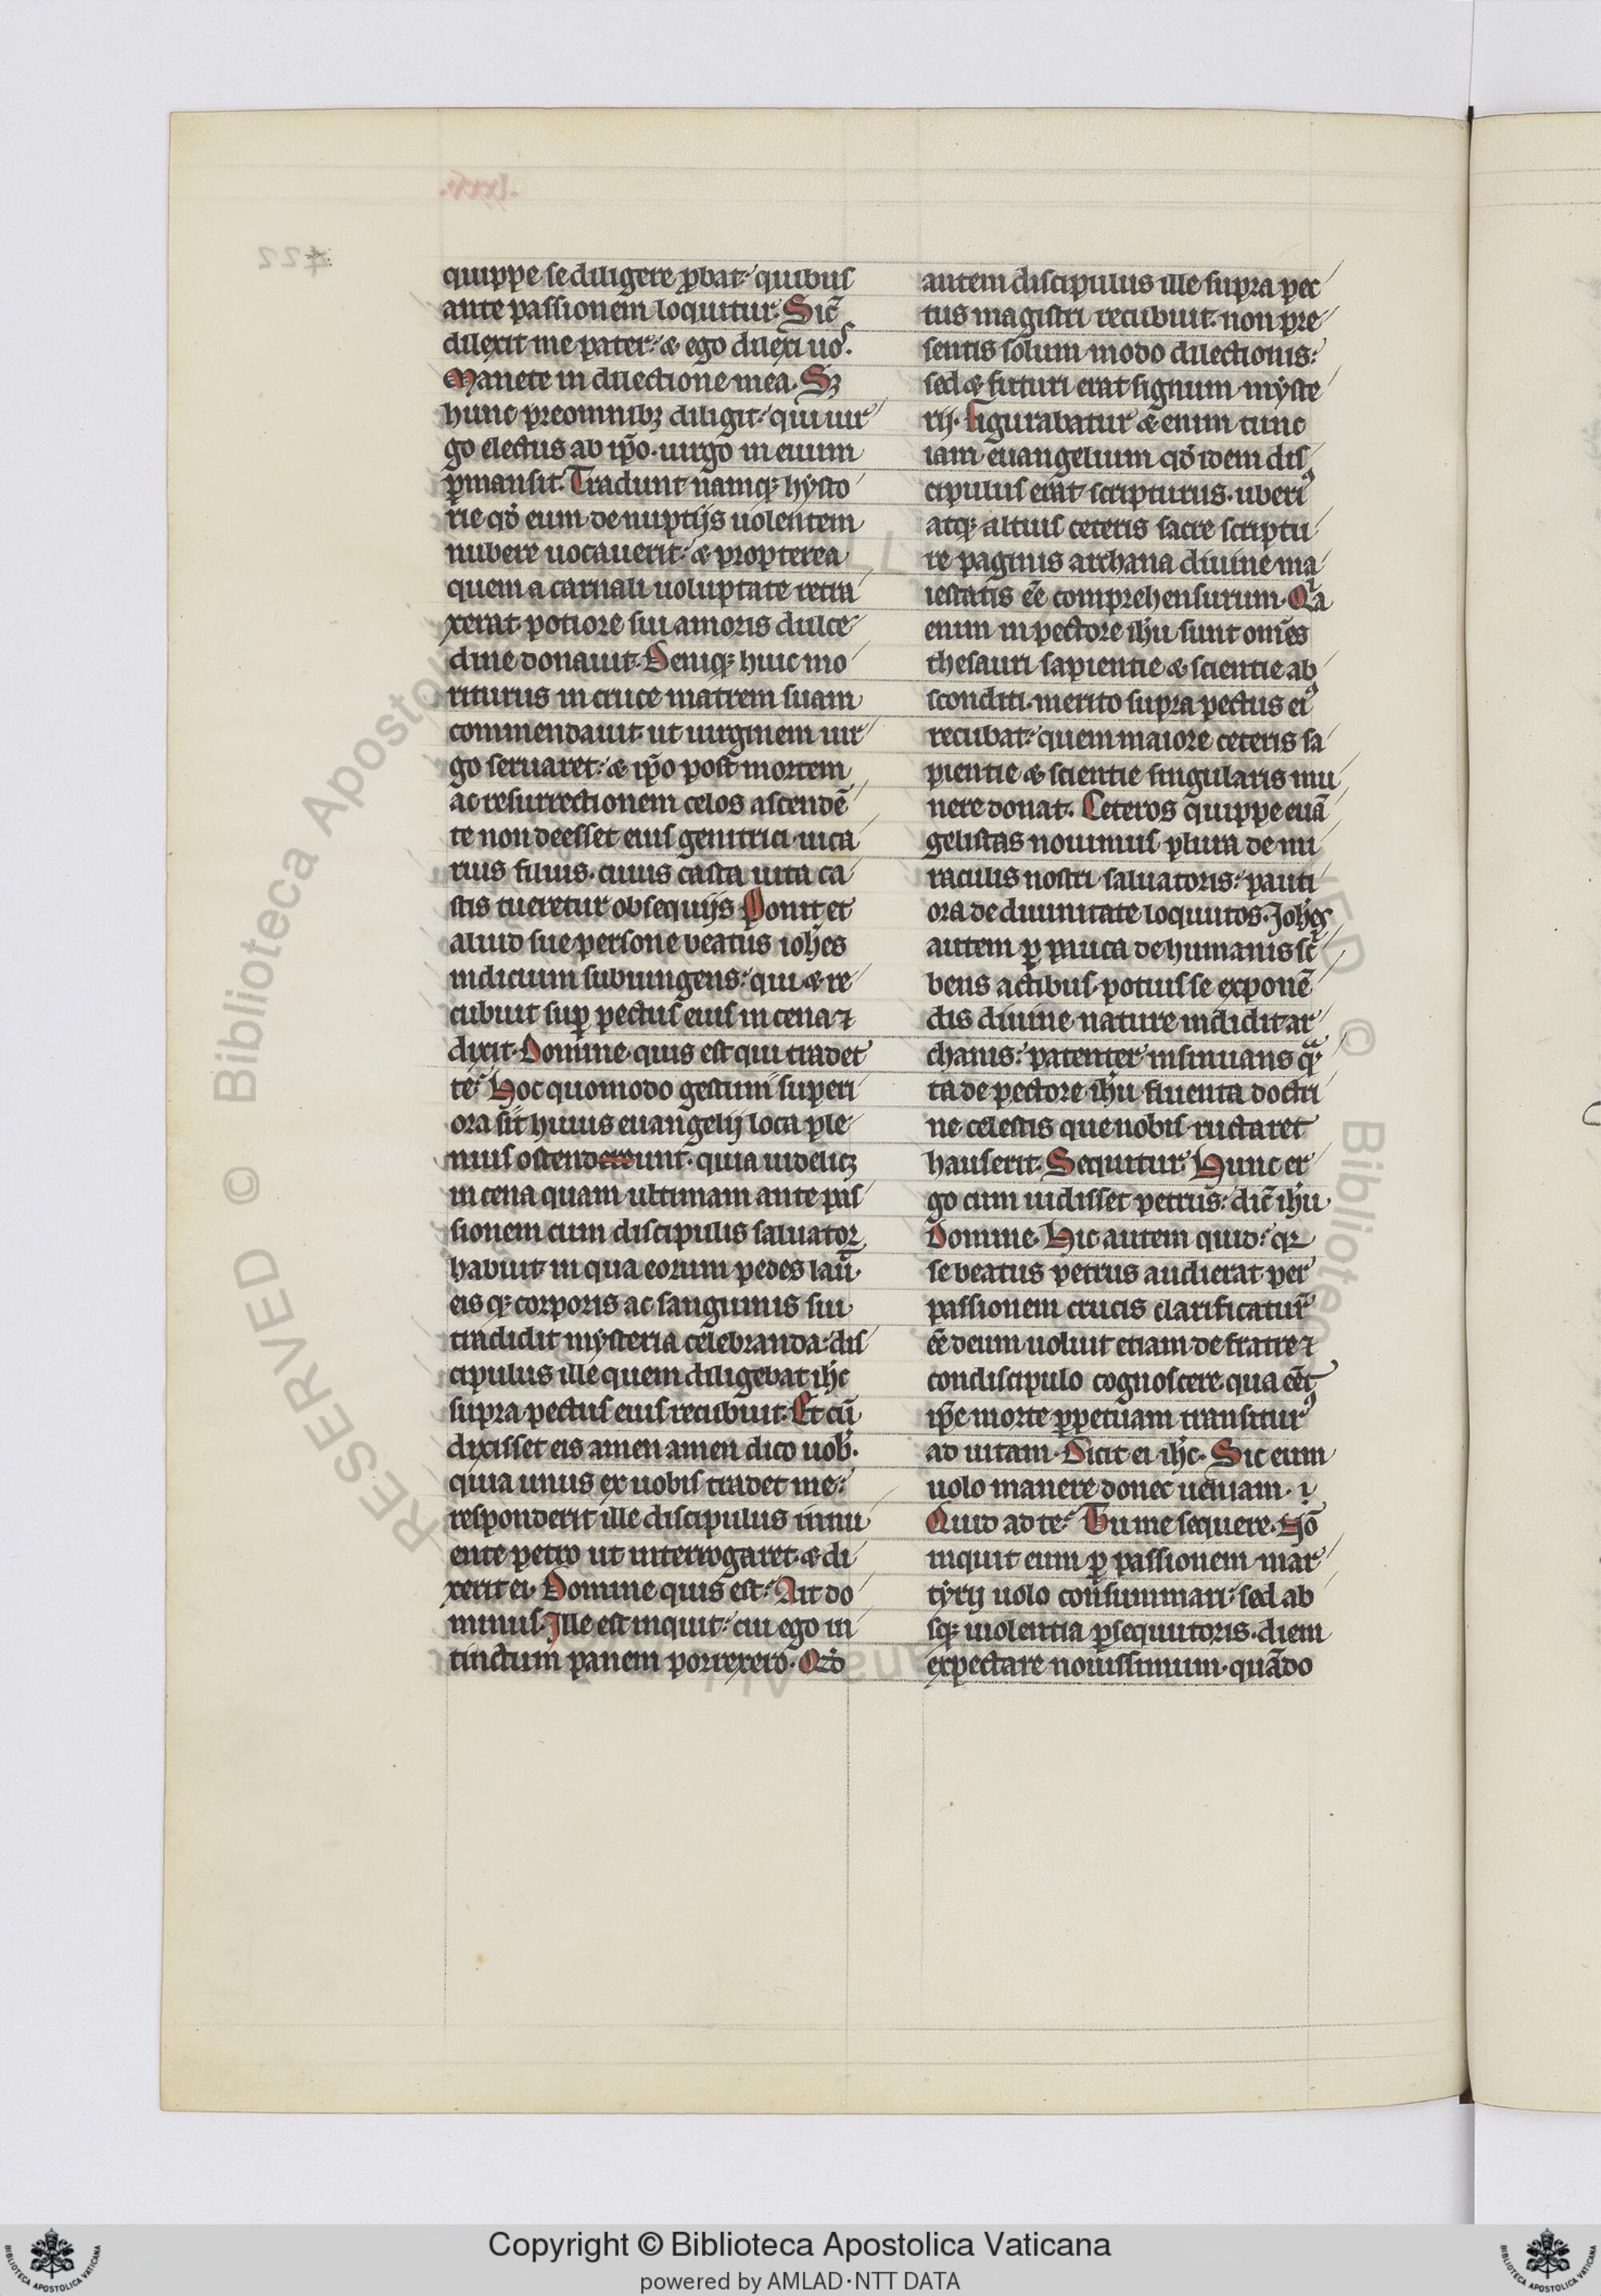 quippe se diligere ꝓbat·quibus
ante passionem loquitur. Sic̄
dilexit me pater: & ego dilexi uos.
Manete in dilectione mea. Sꝫ
hunc pre omnibꝫ diligit· qui uir
go electus ab ip̄o· uirgo in euum
ꝑmansit. Tradunt namqꝫ hysto
rie qđ eum de nuptijs uolentem
nubere uocauerit· & propterea
quem a carnali uoluptate retra
xerat· potiore sui amoris dulce
dine donauit. Deniqꝫ huic mo
riturus in cruce matrem suam
commendauit· ut uirginem uir
go seruaret· & ip̄o post mortem
ac resurrectionem celos ascendē
te non deesset eius genitrici· uica
rius filius· cuius casta uita ca
stis tueretur obsequijs Ponit et
aliud sue persone beatus ioh̄es
indicium subiungens: qui & re
cubuit suꝑ pectus eius in cena ⁊
dixit· Domine quis est qui tradet
te. Hoc quomodo gestum superi
ora sīt huius euangelij loca ple
nius ostenderunt· quia uidelicꝫ
in cena quam ultimam ante pas
sionem cum discipulis saluator
habuit in qua eorum pedes lauit
eis qꝫ corporis ac sanguinis sui
tradidit mysteria celebranda· dis
cipulus ille quem diligebat ih̄c
supra pectus eius recubuit. Et cū
dixisset eis amen amen dico uob·
quia unus ex uobis tradet me:
responderit ille discipulus innu
ente petro ut interrogaret· & di
xerit ei· Domine quis est· Ait do
minus. Ille est inquit· cui ego in
tinctum panem porrexero· Qđ
autem discipulus ille supra pec
tus magistri recubuit· non pre
sentis solum modo dilectionis:
sed & futuri erat signum myste
rij. Figurabatur & enim tunc
iam euangelium qđ idem dis
cipulus erat scripturus· uberiꝰ
atqꝫ altius ceteris sacre scriptu
re paginis archana diuine ma
iestatis eē comprehensurum. Qia
enim in pectore ih̄u sunt om̄es
thesauri sapientie & scientie ab
sconditi· merito supra pectus eiꝰ
recubat· quem maiore ceteris sa
pientie & scientie singularis mu
nere donat. Ceteros quippe euā
gelistas nouimus plura de mi
raculis nostri saluatoris: pauci
ora de diuinitate loquutos. Joh̄es
autem ꝑ pauca de humanis sc̄
bens actibus· potius se exponē
dis diuine nature indidit ar
chanis: patenter insinuans qᵃ
ta de pectore ih̄u fluenta doctri
ne celestis que nobis ructaret
hauserit. Sequitur. Hunc er
go cum uidisset petrus: dic̄ ih̄u
Domine. Hic autem quid· qꝛ
se beatus petrus audierat per
passionem crucis clarificatur̄
eē deum uoluit etiam de fratre ⁊
condiscipulo cognoscere· qua eēt
ip̄e morte ꝑpetuam transiturꝰ
ad uitam. Dicit ei ih̄c. Sic eum
uolo manere donec ueniam·
Quid ad te· Tu me sequere. Nō
inquit eum ꝑ passionem mar
tyrij uolo consummari· sed ab
sqꝫ uiolentia ꝑsequutoris· diem
expectare nouissimum· quādo
Copyright © Biblioteca Apostolica Vaticana
powered by AMLAD·NTT DATA